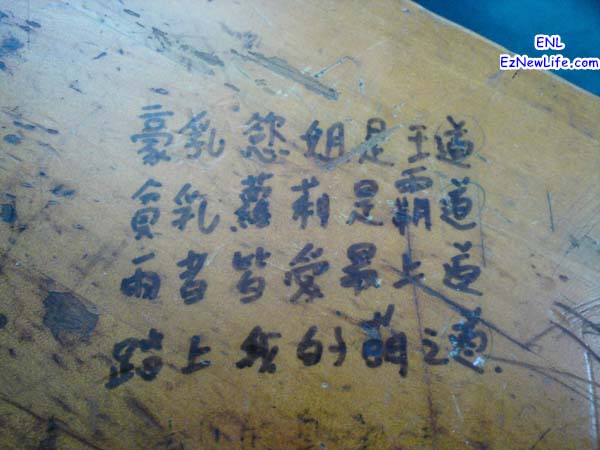 ENL
EzNewLife.com
豪乳慾姐是王道
貧乳蘿莉是霸道
兩者皆愛最上道
踏上我的萌之道.